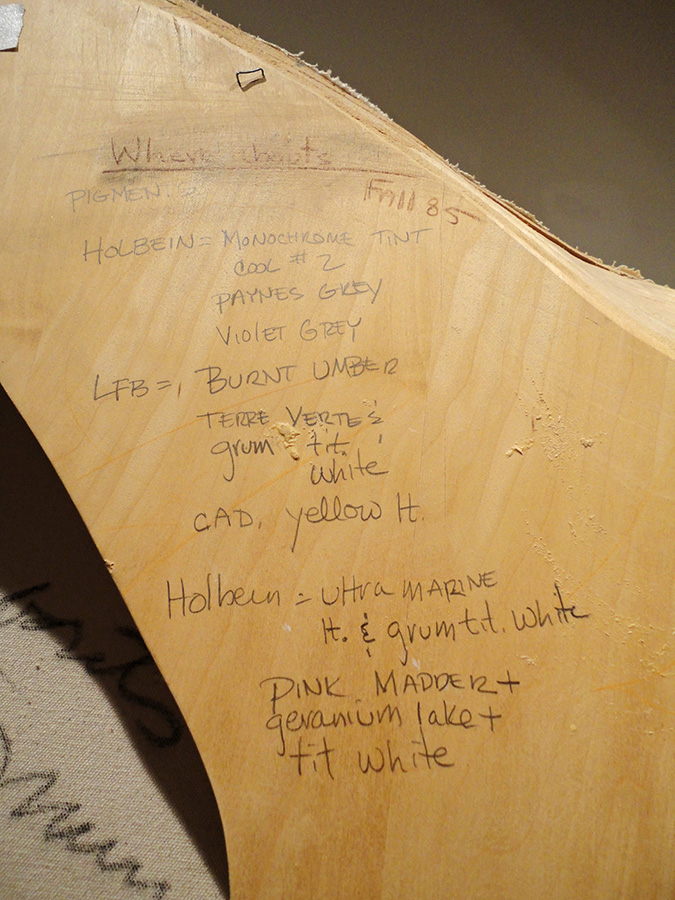 Whereabouts
Fall 85
PIGMEN.
HOLBEIN = MONOCHROME TINT
COOL # 2
PAYNES GREY
VIOLET GREY
LFB =, BURNT UMBER
TERRE VERTE &
grum tit.
white
CAD, yellow lt.
Holbein = ultra MARINE
lt. & grumtit. white
PINK MADDER +
geranium lake +
tit white